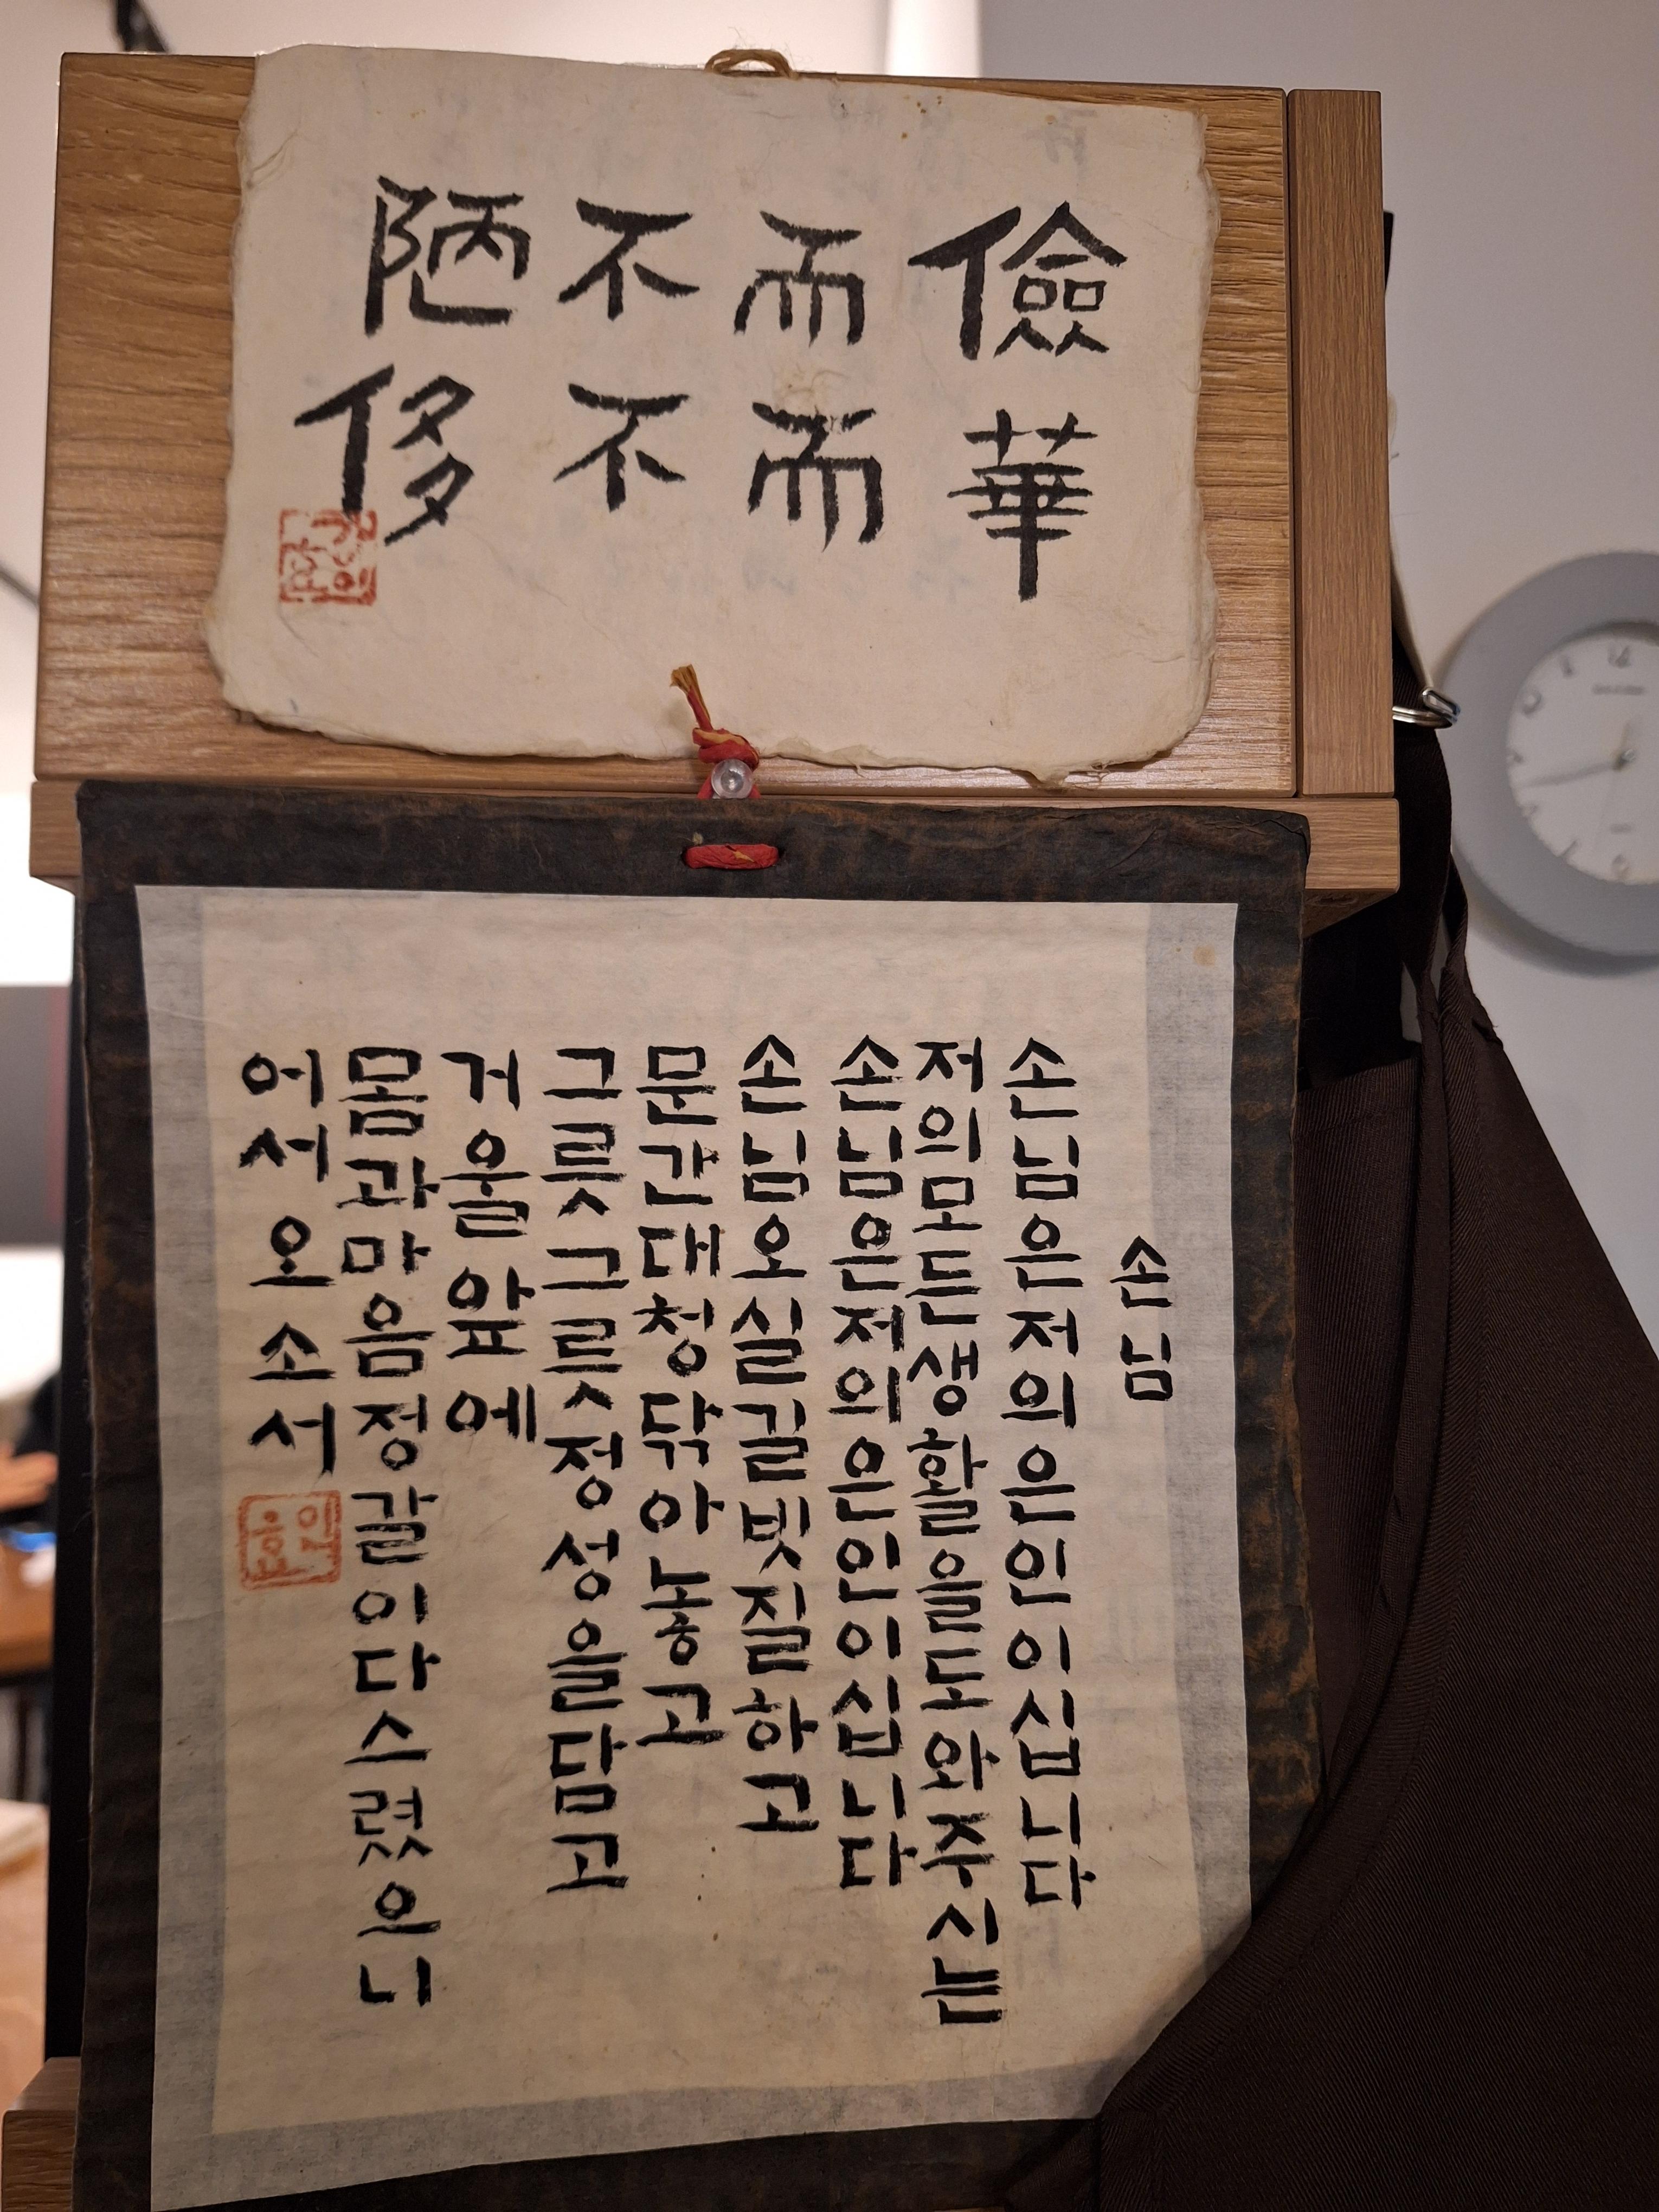 儉而不陋
華而不侈
손님
손님은저의은인이십니다
저의모든생활을도와주시는
손님은저의은인이십니다
손님오실길빗질하고
문간대청닦아놓고
그릇그릇정성을담고
거울앞에
몸과마음정갈이다스렸으니
어서오소서